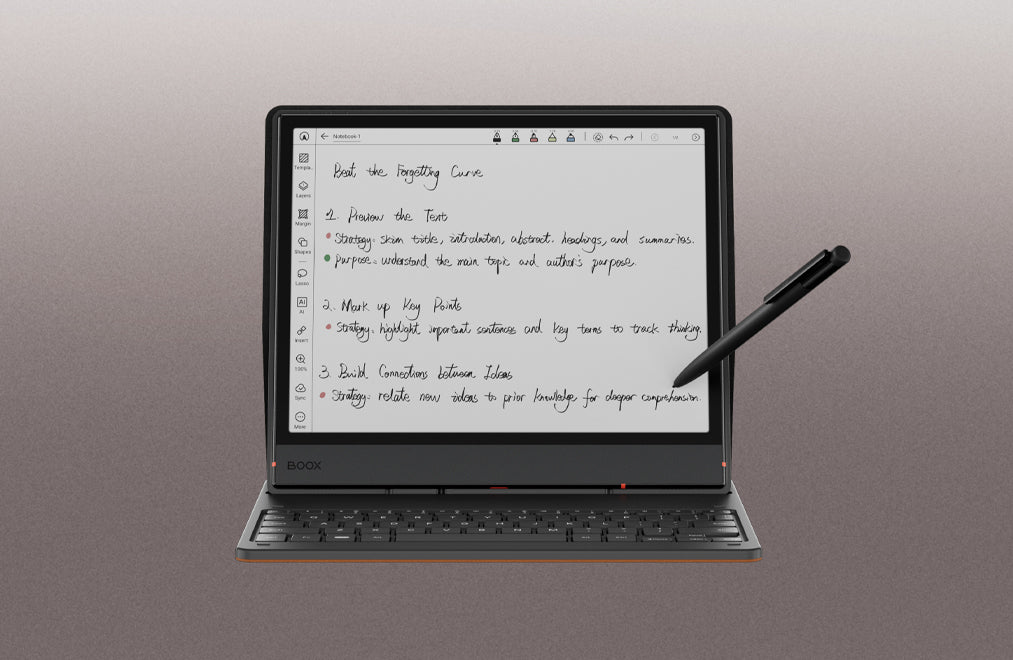 Notebook-1
1/2
Templa..
Layers
Margin
Shapes
Lasso
AI
AI
Insert
100%
Sync
More
Beat the Forgetting Curve
1. Preview the Text
Strategy: skim title, introduction, abstract. headings, and summaries.
Purpose: understand the main topic and author's purpose.
2. Mark up Key Points
Strategy: highlight important sentences and key terms to track thinking.
3. Build Connections between Ideas
Strategy: relate new ideas to prior knowledge for deeper comprehension.
BOOX